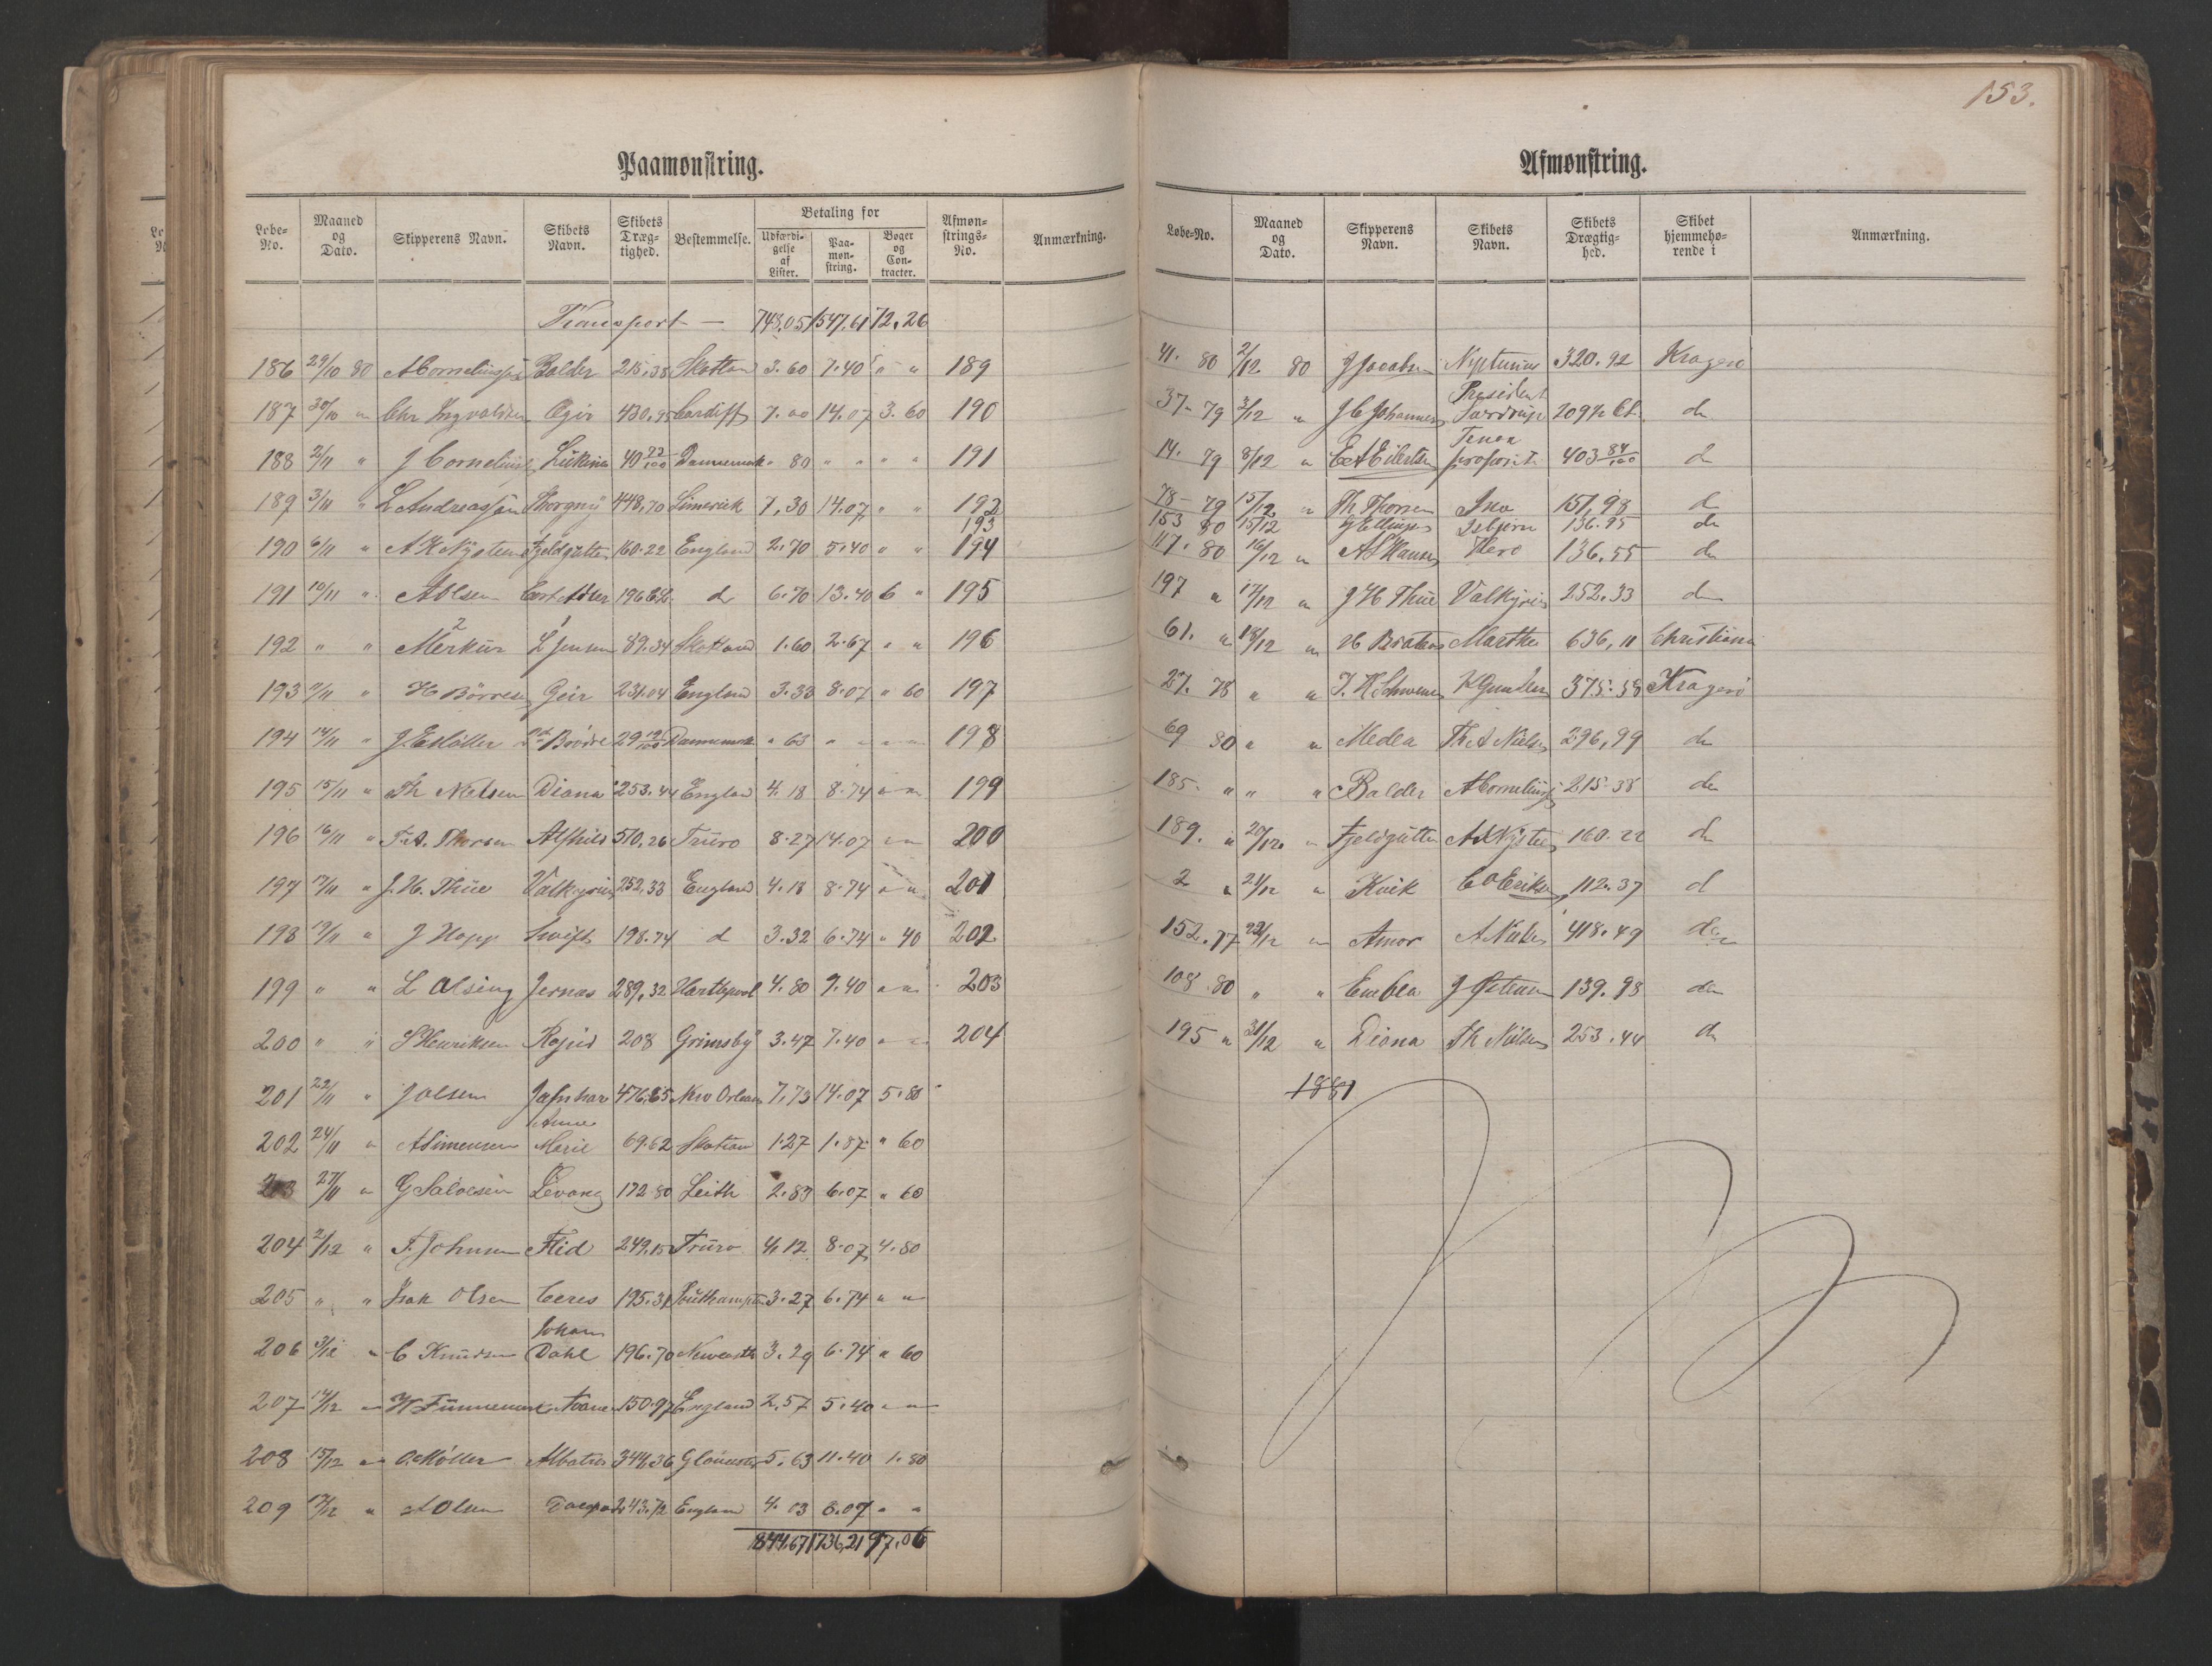 153.
Paamønstring.
Løbe-No. Maaned og Dato. Skipperens Navn. Skibets Navn. Skibets Dræg-tighed. Bestemmelse. Betaling for Udfærdi-gelse af Lister. Paa-møn-string. Bøger og Con-tracter. Afmøn-strings-No. Anmærkning.
Transport — 748.05 1547.61 72.26
186 29/10 80 A Corneliussen Balder 215,38 Skotlan 3.60 7.40 " " 189
187 30/10 " Chr Ingvaldsen Ægir 430.95 Cardiff 7.00 14.07 3.60 190
188 2/11 " J Cornelius 40 22/100 Dannemark " 80 " " " " 191
189 3/11 " L Andreassen Thorgny 448,70 Limerick 7,30 14.07 " " 192
193
190 6/11 " A K Nysteen Fjeldgutten 160.22 England 2.70 5.40 " " 194
191 10/11 " A Olsen Cort Adler 196 d 6.70 13.40 6 " 195
192 " " 2 Merkur 1 L Jensen 89.34 Skotland 1.60 2.67 " " 196
193 9/11 " H Börresen Geir 231.04 England 3.33 8.07 " 60 197
194 14/11 " J. E Möller Brödre 29 19/100 Dannemark " 63 " " " " 198
195 15/11 " Th Nielsen Diana 253.44 England 4.18 8.74 " " 199
196 16/11 " T. A. Thorsen Alfhild 510,26 Truro 8.27 14.07 " " 200
197 17/11 " J. H. Thue Valkyrien 252,33 England 4.18 8.74 " " 201
198 19/11 " J Hopp Swift 198.74 d 3.32 6.74 " 40 202
199 " " L Olsing Jernæs 289,32 Hartlepool 4.80 9.40 " " 203
200 " " S Henriksen Rapid 208 Grimsby 3.47 7.40 " " 204
201 22/11 " J Olsen Jafnhar 476.65 New Orleans 7,73 14.07 5.80
202 24/11 " A Simensen Anne Marie 69.62 Skotlan 1.27 1.87 " 60
203 27/11 " G Salvesen Levang 172.80 Leith 2.83 6.07 " 60
204 2/12 " T. Johnsen Flid 249,15 Truro 4,12 8.07 4.80
205 " " Isak Olsen Ceres 195.31 Southampton 3.27 6.74 " "
206 3/12 " C Knudsen Johan Dahl 196.70 Newcastle 3.29 6.74 " 60
207 14/12 " Funnemark 150.97 England 2.57 5.40 " "
208 15/12 " O. Möller Albatros 344,36 Gloucester 5.63 11.40 1.80
209 17/12 " A Olsen 243.72 England 4.03 8.07 " "
844.67 1736,21 97.06
Afmønstring.
Løbe-No. Maaned og Dato. Skipperens Navn. Skibets Navn. Skibets Drægtig-hed. Skibet hjemmehø-rende i Anmærkning.
41. 80 2/12 80 J Jacobsen Neptunus 320.92 Kragerø
37- 79 3/12 " J C Johannesen President Sverdrup 209 1/2 Cl. do
14. 79 8/12 " E A Eilertsen Tenax propositi 403 84/100 d
78- 79 15/12 " Th Thorsen Ino 151,98 do
153 80 15/12 G Ellingsen Isbjørn 136.95 do
117. 80 16/12 " A L Hansen Hero 136.55 do
197 " 17/12 " J H Thue Valkyrien 252.33 do
61. " 18/12 " Marthe 636,11 Christiania
27. 78 " " T. H Schwenn K Gunders 375.59 Kragerø
69 80 " " Medea Th A Nielsen 296,99 do
185. " " " Balder A Corneliussen 215.38 do
189. " 20/12. " Fjeldgutten A K Nysteen 160.22 d
2 " 21/12 " Kvik C O Eriksen 112.37 d
152. 77 22/12 " Amor A Nielsen 418.49 do
108. 80 " " Embla J Petersen 139.98 do
195 " 31/12 " Diana Th Nielsen 253.44 do
1881